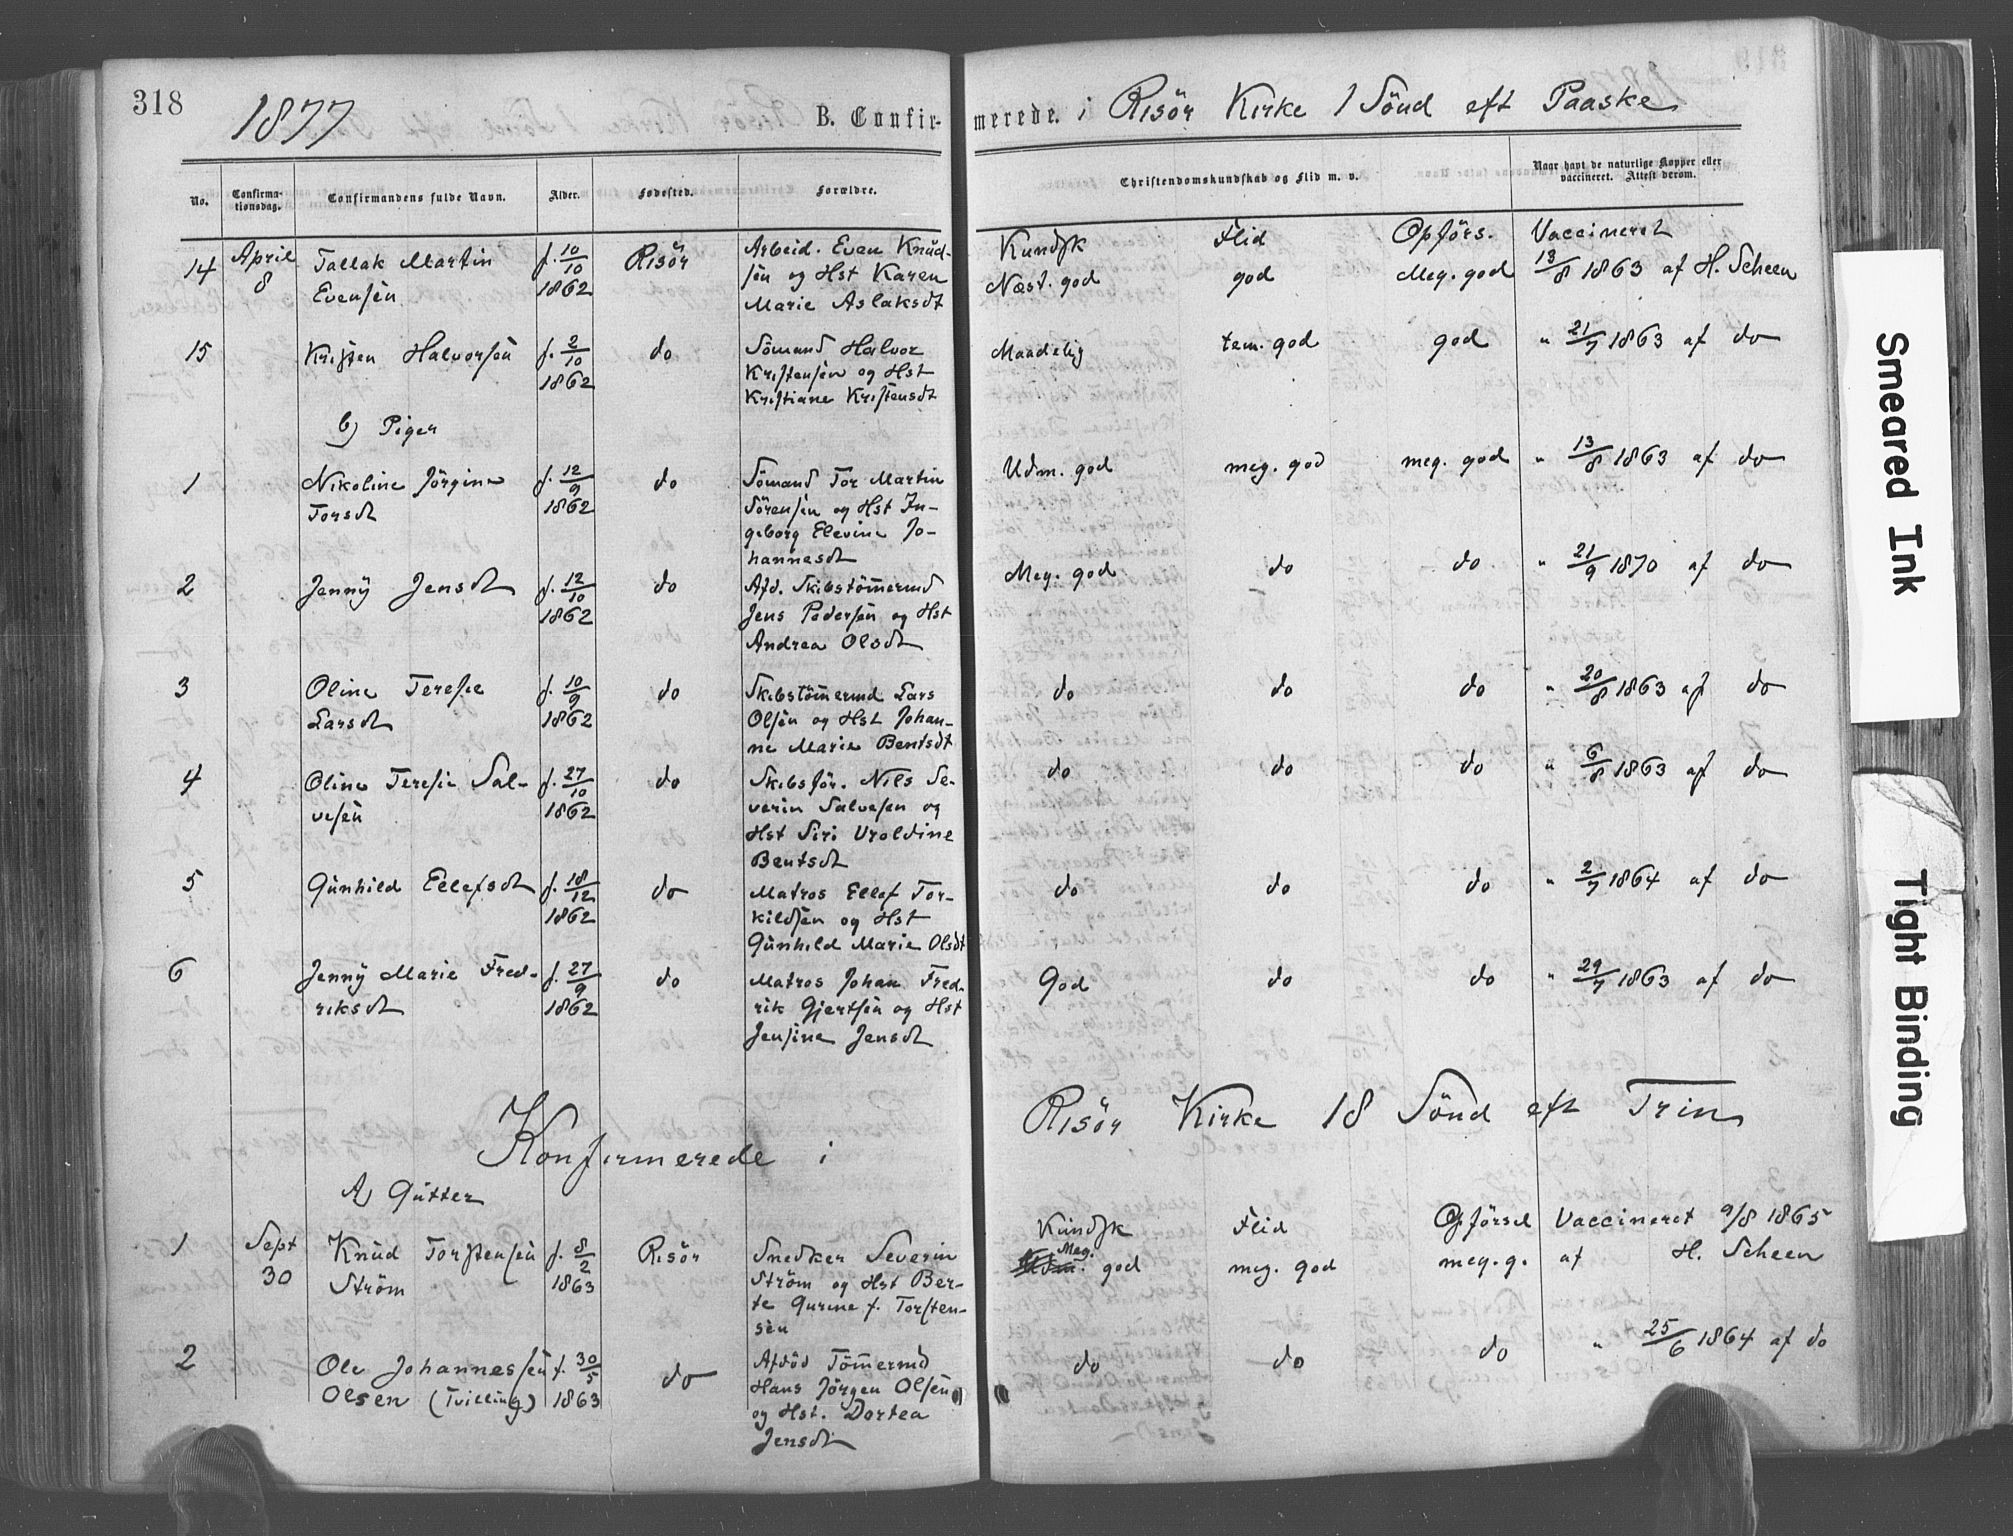 318
1877
B. Confirmerede. i Risör Kirke 1 Sönd eft Paaske
No. Confirmationsdag. Confirmandens fulde Navn. Alder. Fødested. Forældre. Christendomskundskab og Flid m. v. Naar havt de naturlige Kopper eller vaccineret. Attest derom.
Kundsk Flid Opförs. Vaccineret
14 April 8 Tallak Martin Evensen f. 10/10 1862 Risör Arbeid. Even Knudsen og Hst Karen Marie Aslaksdt Næst. god god Meg. god 13/8 1863 af H. Scheen
15 Kristen Halvorsen f. 2/10 1862 do Sömand Halvor Kristensen og Hst Kristiane Kristensdt Maadelig tem. god god " 21/7 1863 af do
b) Piger
1 Nikoline Jörgine Torsdt f. 12/9 1862 do Sömand Tor Martin Sörensen og Hst Ingeborg Elevine Johannesdt Udm. god meg. god meg. god " 13/8 1863 af do
2 Jenny Jensdt f. 12/10 1862 do Afd. Skibstömermd Jens Pedersen og Hst Andrea Olsdt Meg. god do do " 21/9 1870 af do
3 Oline Teresie Larsdt f. 10/9 1862 do Skibstömermd Lars Olsen og Hst Johanne Marie Bentsdt do do do " 20/8 1863 af do
4 Oline Teresie Salvesen f. 27/10 1862 do Skibsför. Nils Severin Salvesen og Hst Siri Uroldine Bentsdt do do do " 6/8 1863 af do
5 Gunhild Ellefsdt f. 18/12 1862 do Matros Ellef Torkildsen og Hst Gunhild Marie Olsdt do do do " 2/7 1864 af do
6 Jenny Marie Fredriksdt f. 27/9 1862 do Matros Johan Fredrik Gjertsen og Hst Jensine Jensdt God do do " 29/7 1863 af do
Konfirmerede i Risör Kirke 18 Sönd eft Trin
A) Gutter
Kundsk Flid Opförsel Vaccineret 9/8 1865
1 Sept 30 Knud Torstensen Ström f. 8/2 1863 Risör Snedker Severin Ström og Hst Berte Gurine f. Torstensen Udm. Meg. god meg. god meg. g. af H. Scheen
2 Ole Johannessen Olsen (Tvilling) f. 30/5 1863 do Afdöd Tömermd Hans Jörgen Olsen og Hst. Dortea Jensdt do do do " 25/6 1864 af do
Smeared Ink
Tight Binding